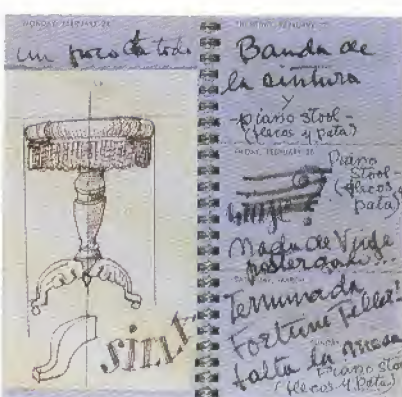 MONDAY, FEBRUARY 24
un poco de todo
sint
THURSDAY, FEBRUARY
Banda de
la cintura
y
-piano stool-
(flecos y pata)
FRIDAY, FEBRUARY 28
Piano
Stool-
(flecos y
pata)
Magia de Viaje
postergado..
Terminada
Fortune Teller!
falta la mesa
Piano Stool
(flecos y Pata)